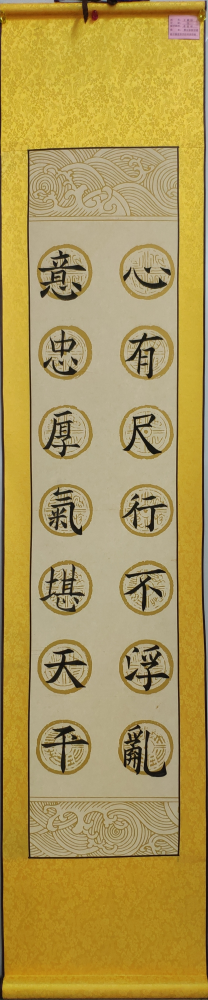 心有尺行不浮亂
意忠厚氣堪天平